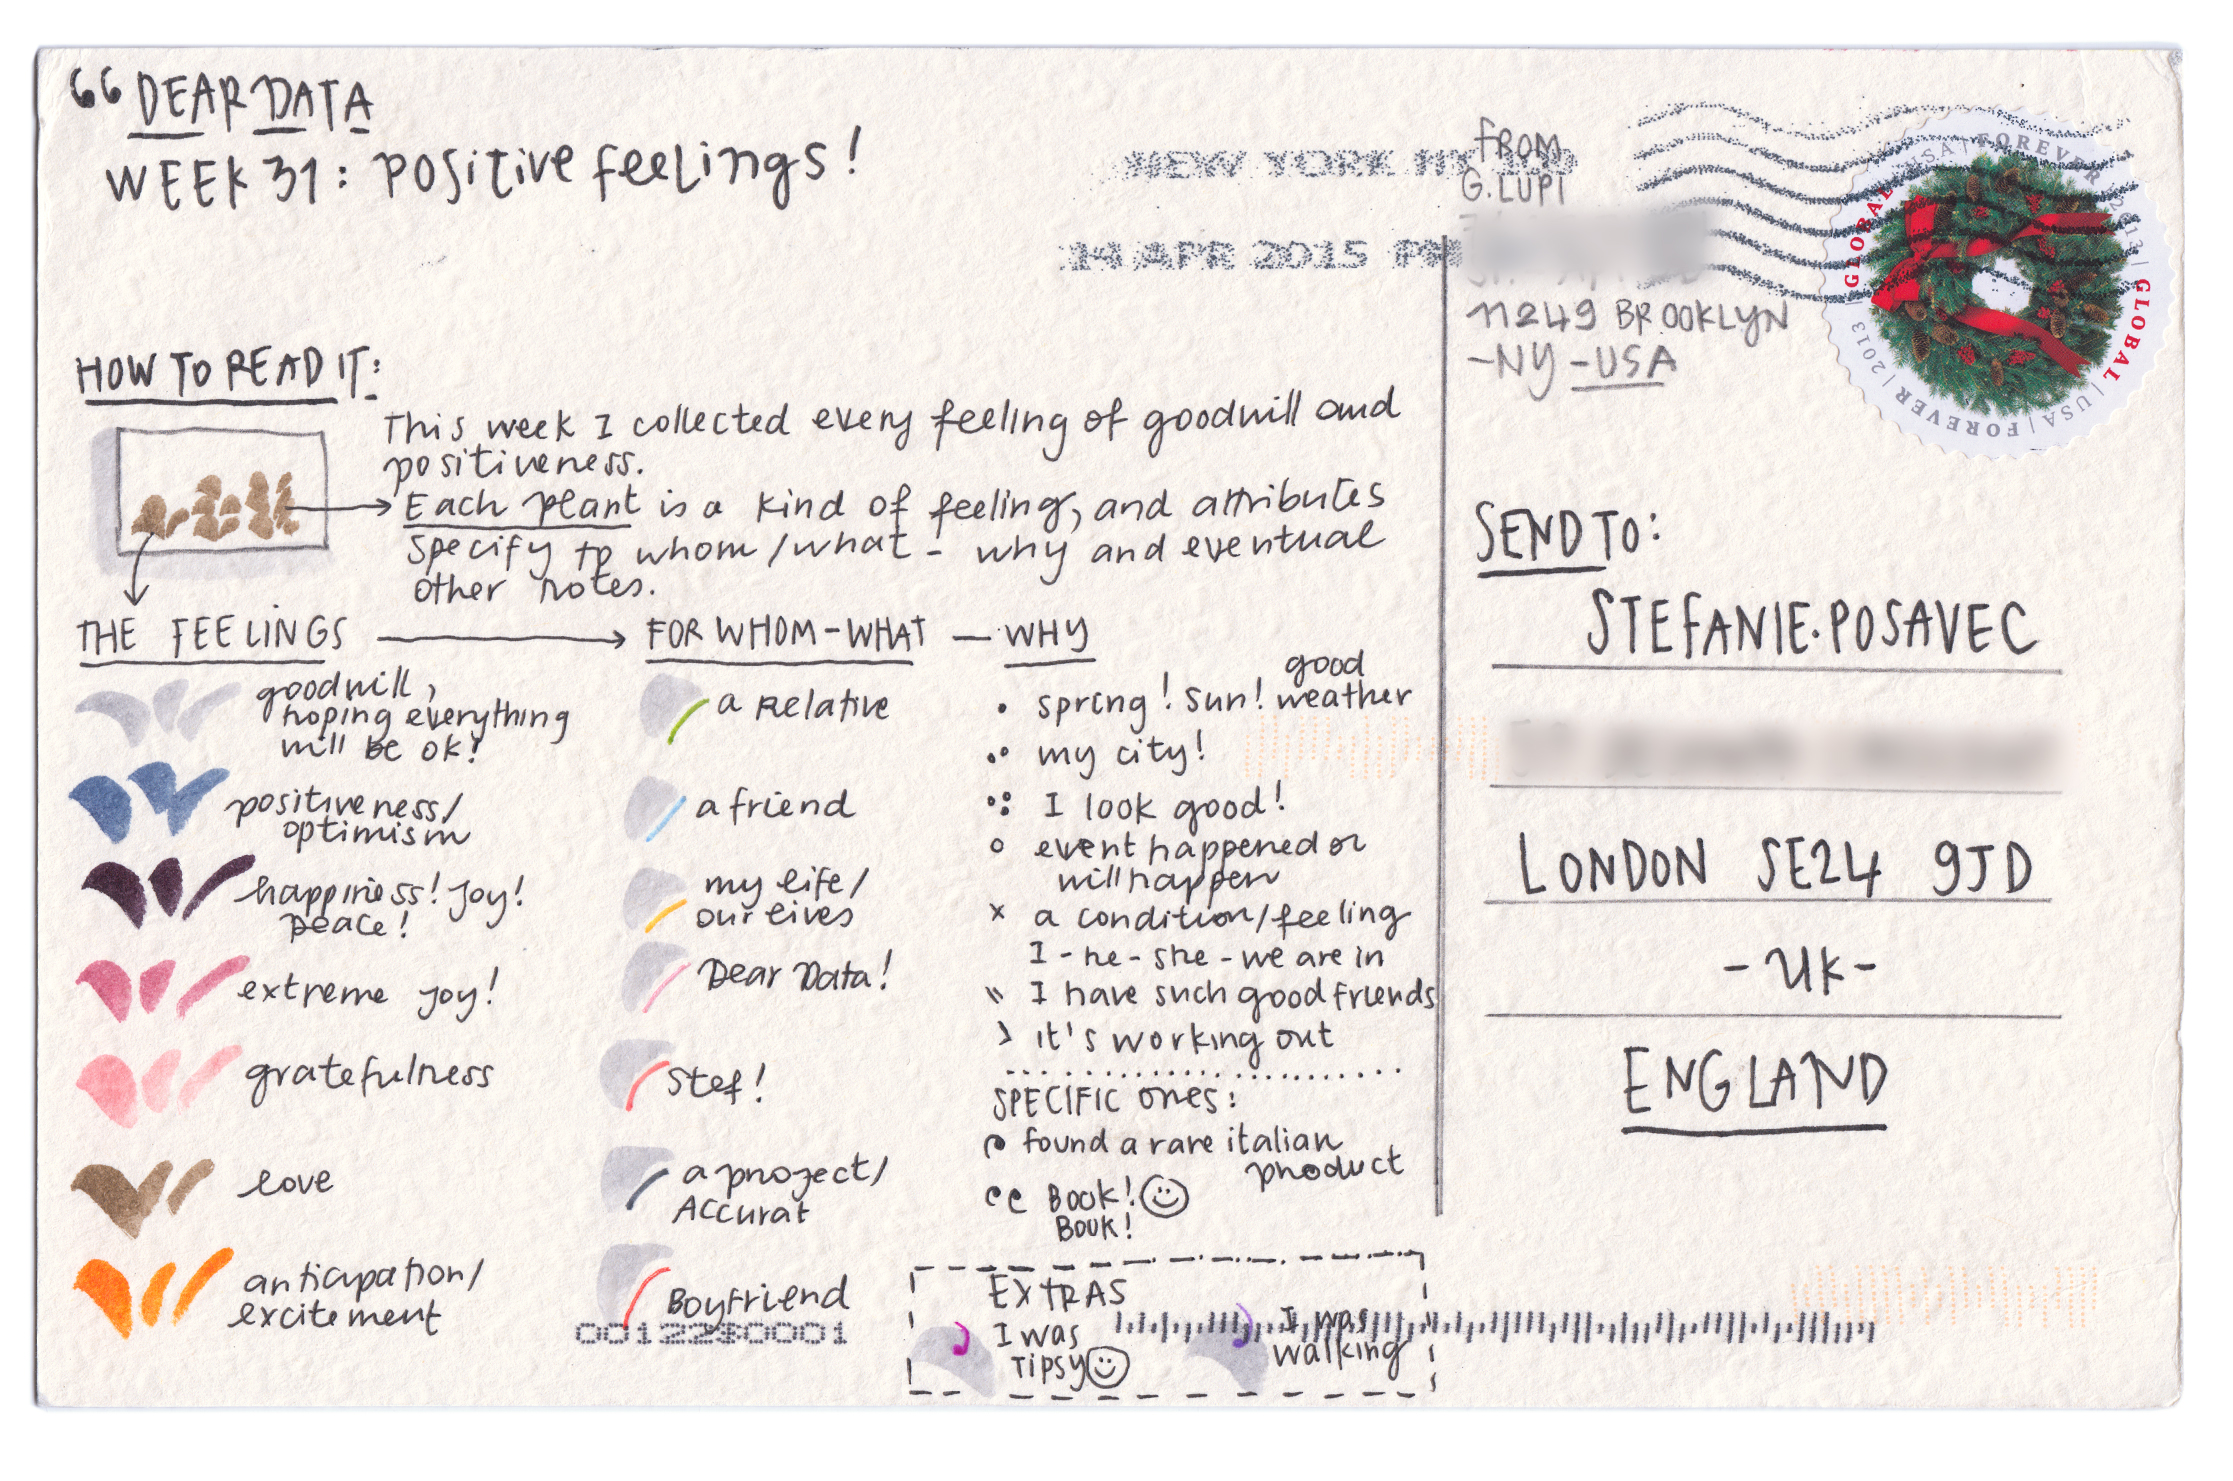 DEAR DATA
WEEK 31: positive feelings!
NEW YORK NY 100
14 APR 2015 PM
FROM
G. LUPI
11249 BROOKLYN
-NY-USA
GLOBAL | USA | FOREVER | 2013 | GLOBAL | USA | FOREVER | 2013 |
HOW TO READ IT:
This week I collected every feeling of goodwill and
positiveness.
Each plant is a kind of feeling, and attributes
specify to whom/what - why and eventual
other notes.
THE FEELINGS
goodwill,
hoping everything
will be ok!
positiveness/
optimism
happiness! Joy!
peace!
extreme joy!
gratefulness
love
anticipation/
excitement
FOR WHOM-WHAT
a Relative
a friend
my life/
our lives
Dear Data!
Stef!
a project/
Accurat
Boyfriend
00122$0001
WHY
spring! sun! good
weather
my city!
I look good!
event happened or
will happen
x a condition/feeling
I-he-she-we are in
I have such good friends
it's working out
SPECIFIC ones:
found a rare italian
product
BOOK!
BOOK!
EXTRAS
I was
TIPSY
I was
walking
SEND TO:
STEFANIE.POSAVEC
LONDON SE24 9JD
-UK-
ENGLAND